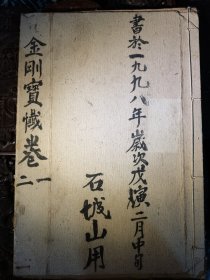 書於一九九八年歲次戊演二月中旬
石城山用
金剛寶懺卷一二